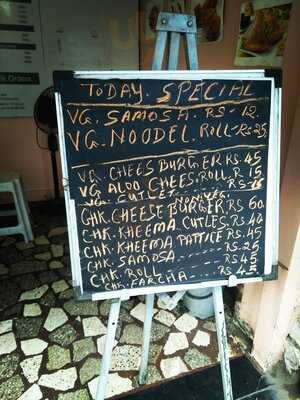 TODAY. SPECIAL
VG. SAMOSA. RS-12.
VG. NOODEL. ROLL-RS.25
VG. CHEES BURGER RS.45
VG. ALOO CHEES, ROLL, R 15
VG. CUTLET
NONVEG
CHK. CHEESE BURGER, RS 60
CHK. KHEEMA CUTLES, RS.40
CHK. KHEEMA PATTICE RS.45
CHK. SAMOSA ---- RS.25
CHK. ROLL ---- RS.
CHK. FARCHA --- RS 45